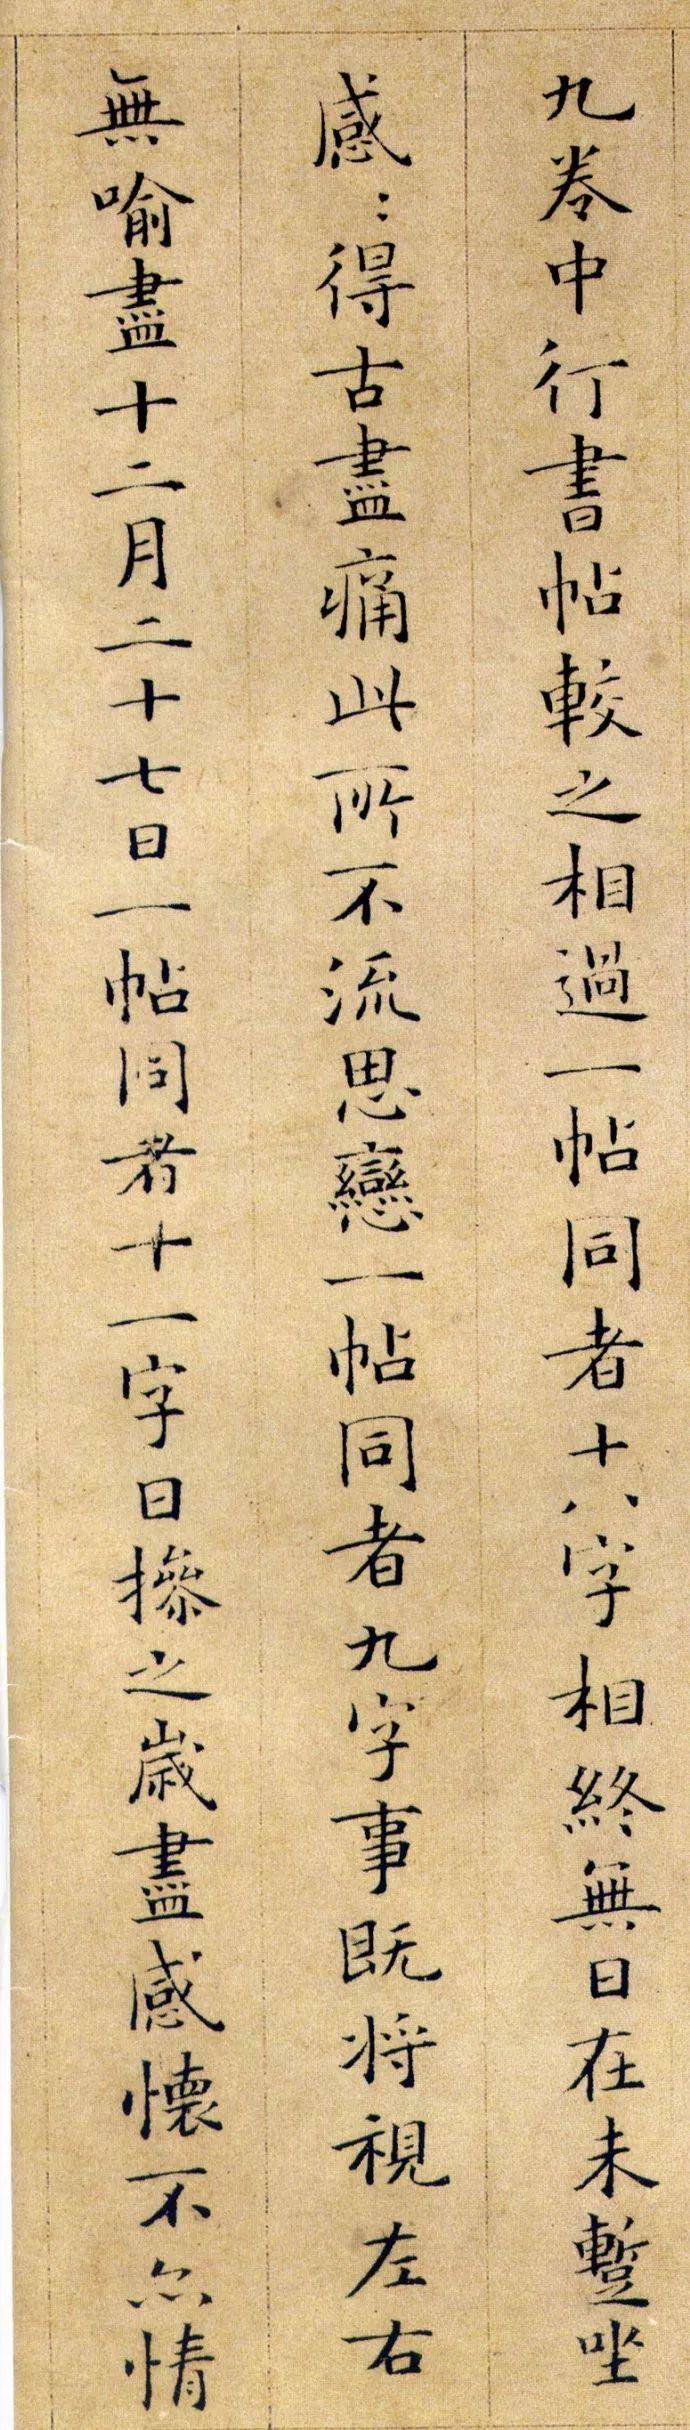 九卷中行書帖較之相過一帖同者十八字相終無日在未蹔㘴
感〻得古盡痛此所不流思戀一帖同者九字事既将視左右
無喻盡十二月二十七日一帖同者十一字日摻之歳盡感懐不尒情